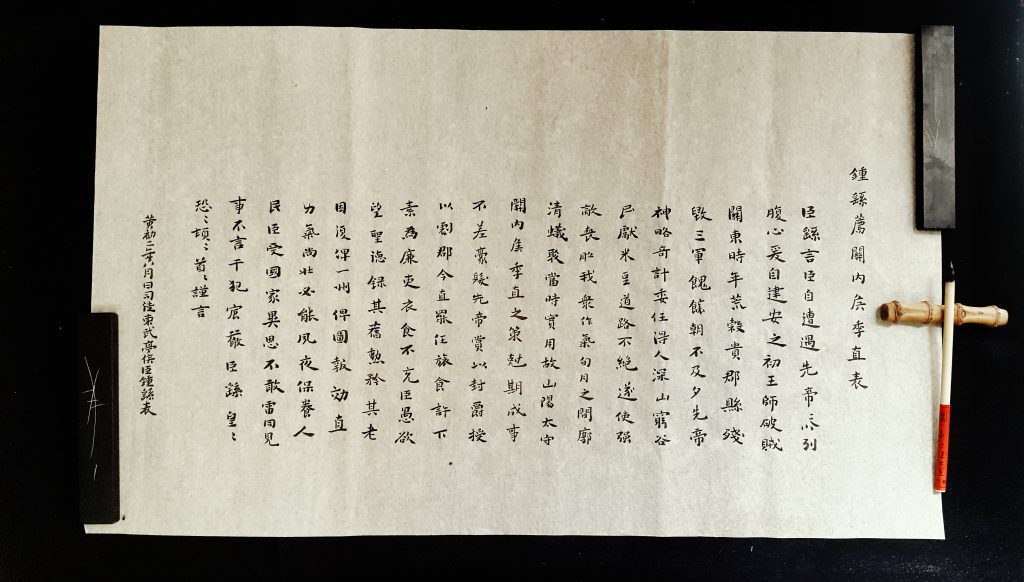 鍾繇薦關內侯季直表
臣繇言臣自遭遇先帝忝列
腹心爰自建安之初王師破賊
關東時年荒穀貴郡縣殘
毀三軍餽饟朝不及夕先帝
神略奇計委任得人深山窮谷
民獻米豆道路不絕遂使强
敵喪膽我衆作氣旬月之閒廓
清蟻聚當時實用故山陽太守
關內侯季直之策尅期成事
不差豪髮先帝賞以封爵授
以劇郡今直罷任旅食許下
素為廉吏衣食不充臣愚欲
望聖德錄其舊勳矜其老
困復俾一州俾圖報効直
力氣尚壯必能夙夜保養人
民臣受國家異恩不敢雷同見
事不言干犯宸嚴臣繇皇〻
恐〻頓〻首〻謹言
黃初二年八月日司徒東武亭侯臣鍾繇表